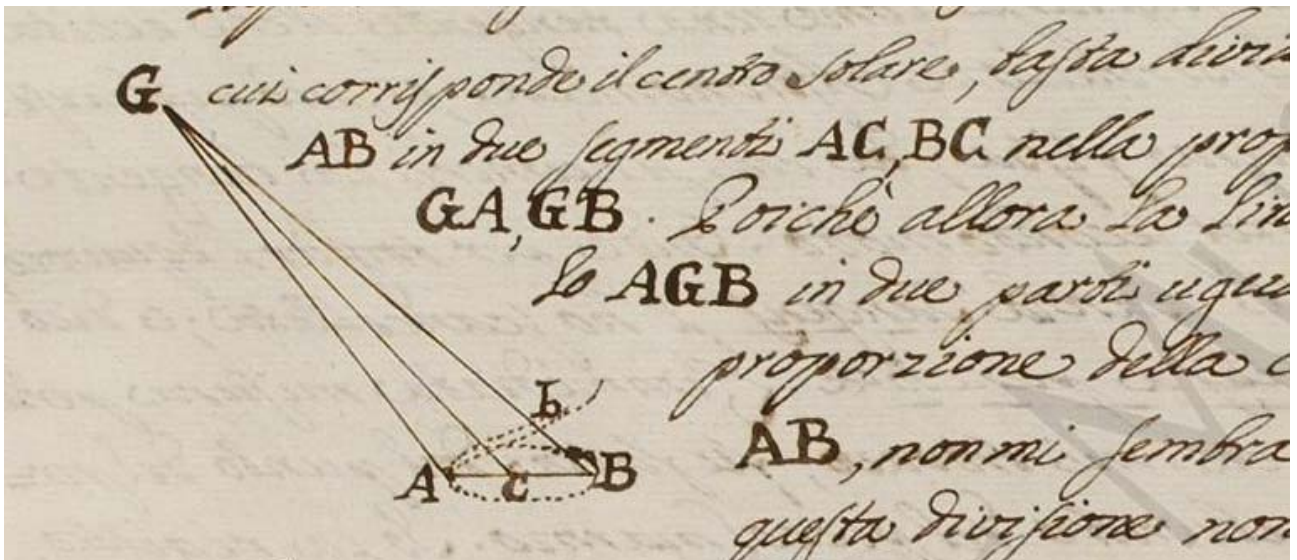 G cui corrisponde il centro solare, basta divi
AB in due segmenti AC, BC nella prop
GA, GB. Poichè allora la lin
lo AGB in due parti ugu
proporzione della c
b
AB, non mi sembra
A c B
questa divisione non